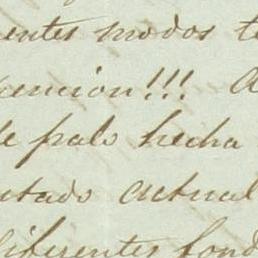 entes modos te
encion!!! A
de palo hecha
utado actual
diferentes fond